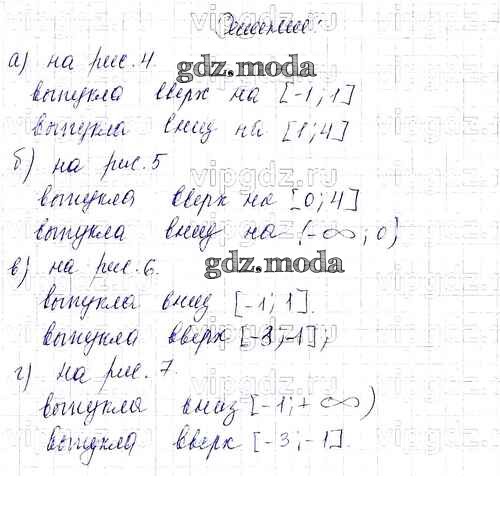 Решение:
а) на рис. 4.
gdz.moda
выпукла вверх на [-1; 1]
выпукла вниз на [1; 4]
б) на рис. 5
выпукла вверх на [0; 4]
выпукла вниз на (-∞; 0)
в) на рис. 6.
gdz.moda
выпукла вниз [-1; 1].
выпукла вверх [-3; -1];
г) на рис. 7.
выпукла вниз [-1; +∞)
выпукла вверх [-3; -1].
vipgdz.ru